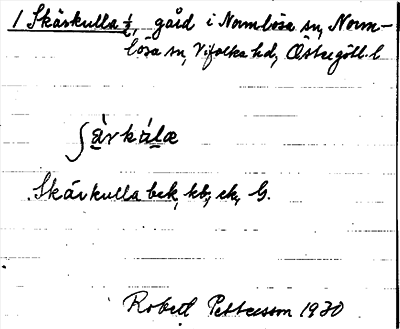 1 Skärkulla ½, gård i Normlösa sn, Norm-
lösa sn, Vifolka hd, Östergötl. l
ʃä̀rkùlæ
Skärkulla bek, kb, ek, G.
Robert Pettersson 1930